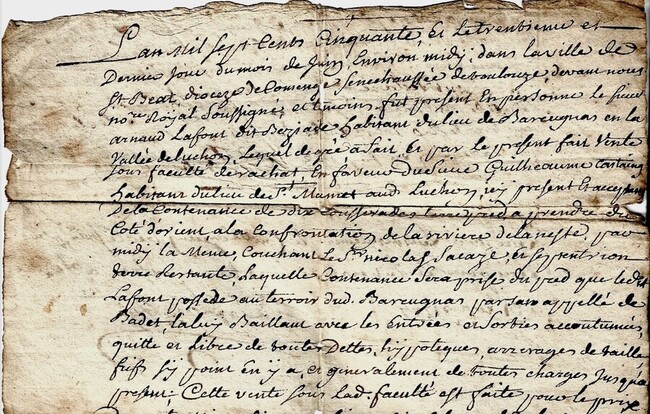 L'an Mil sept Cents Cinquante et Le trentieme et
Dernier Jour du mois de Juin Environ midy, dans la ville de
St. Beat, dioceze de Comenge, Senechaussée de toulouze, devant nous
nore. Royal Soussigné, et temoins, fut present En personne le sieur
arnaud Lafont dit Berzade habitant du lieu de Bareugnas en la
Vallée de luchon, Lequel de gré a fait et par le present fait Vente
sous faculté de rachat, En faveur Du sieur Guilheaume
habitant du lieu de St. Mamet aud. Luchon, icy present Et
De la Contenance de dix a prendre du
Coté d'orient a la Confrontation de la riviere de la neste, par
midy la Meme, Couchant le Sr. nicolas Sacaze, et septentrion
terre Restante, Laquelle Contenance Sera prise du pred que led.
Lafont possede au terroir dud. Bareugnas parsan appellé de
Badet, la luy Baillant avec les Entrées et Sorties accoutumées,
quitte et Libre de toutes Dettes, hypoteques, arrerages de taille
fiefs sy point en y a, et generalement de toutes charges Jusqu'a
present; Cette vente sous lad. faculté est faite pour le prix